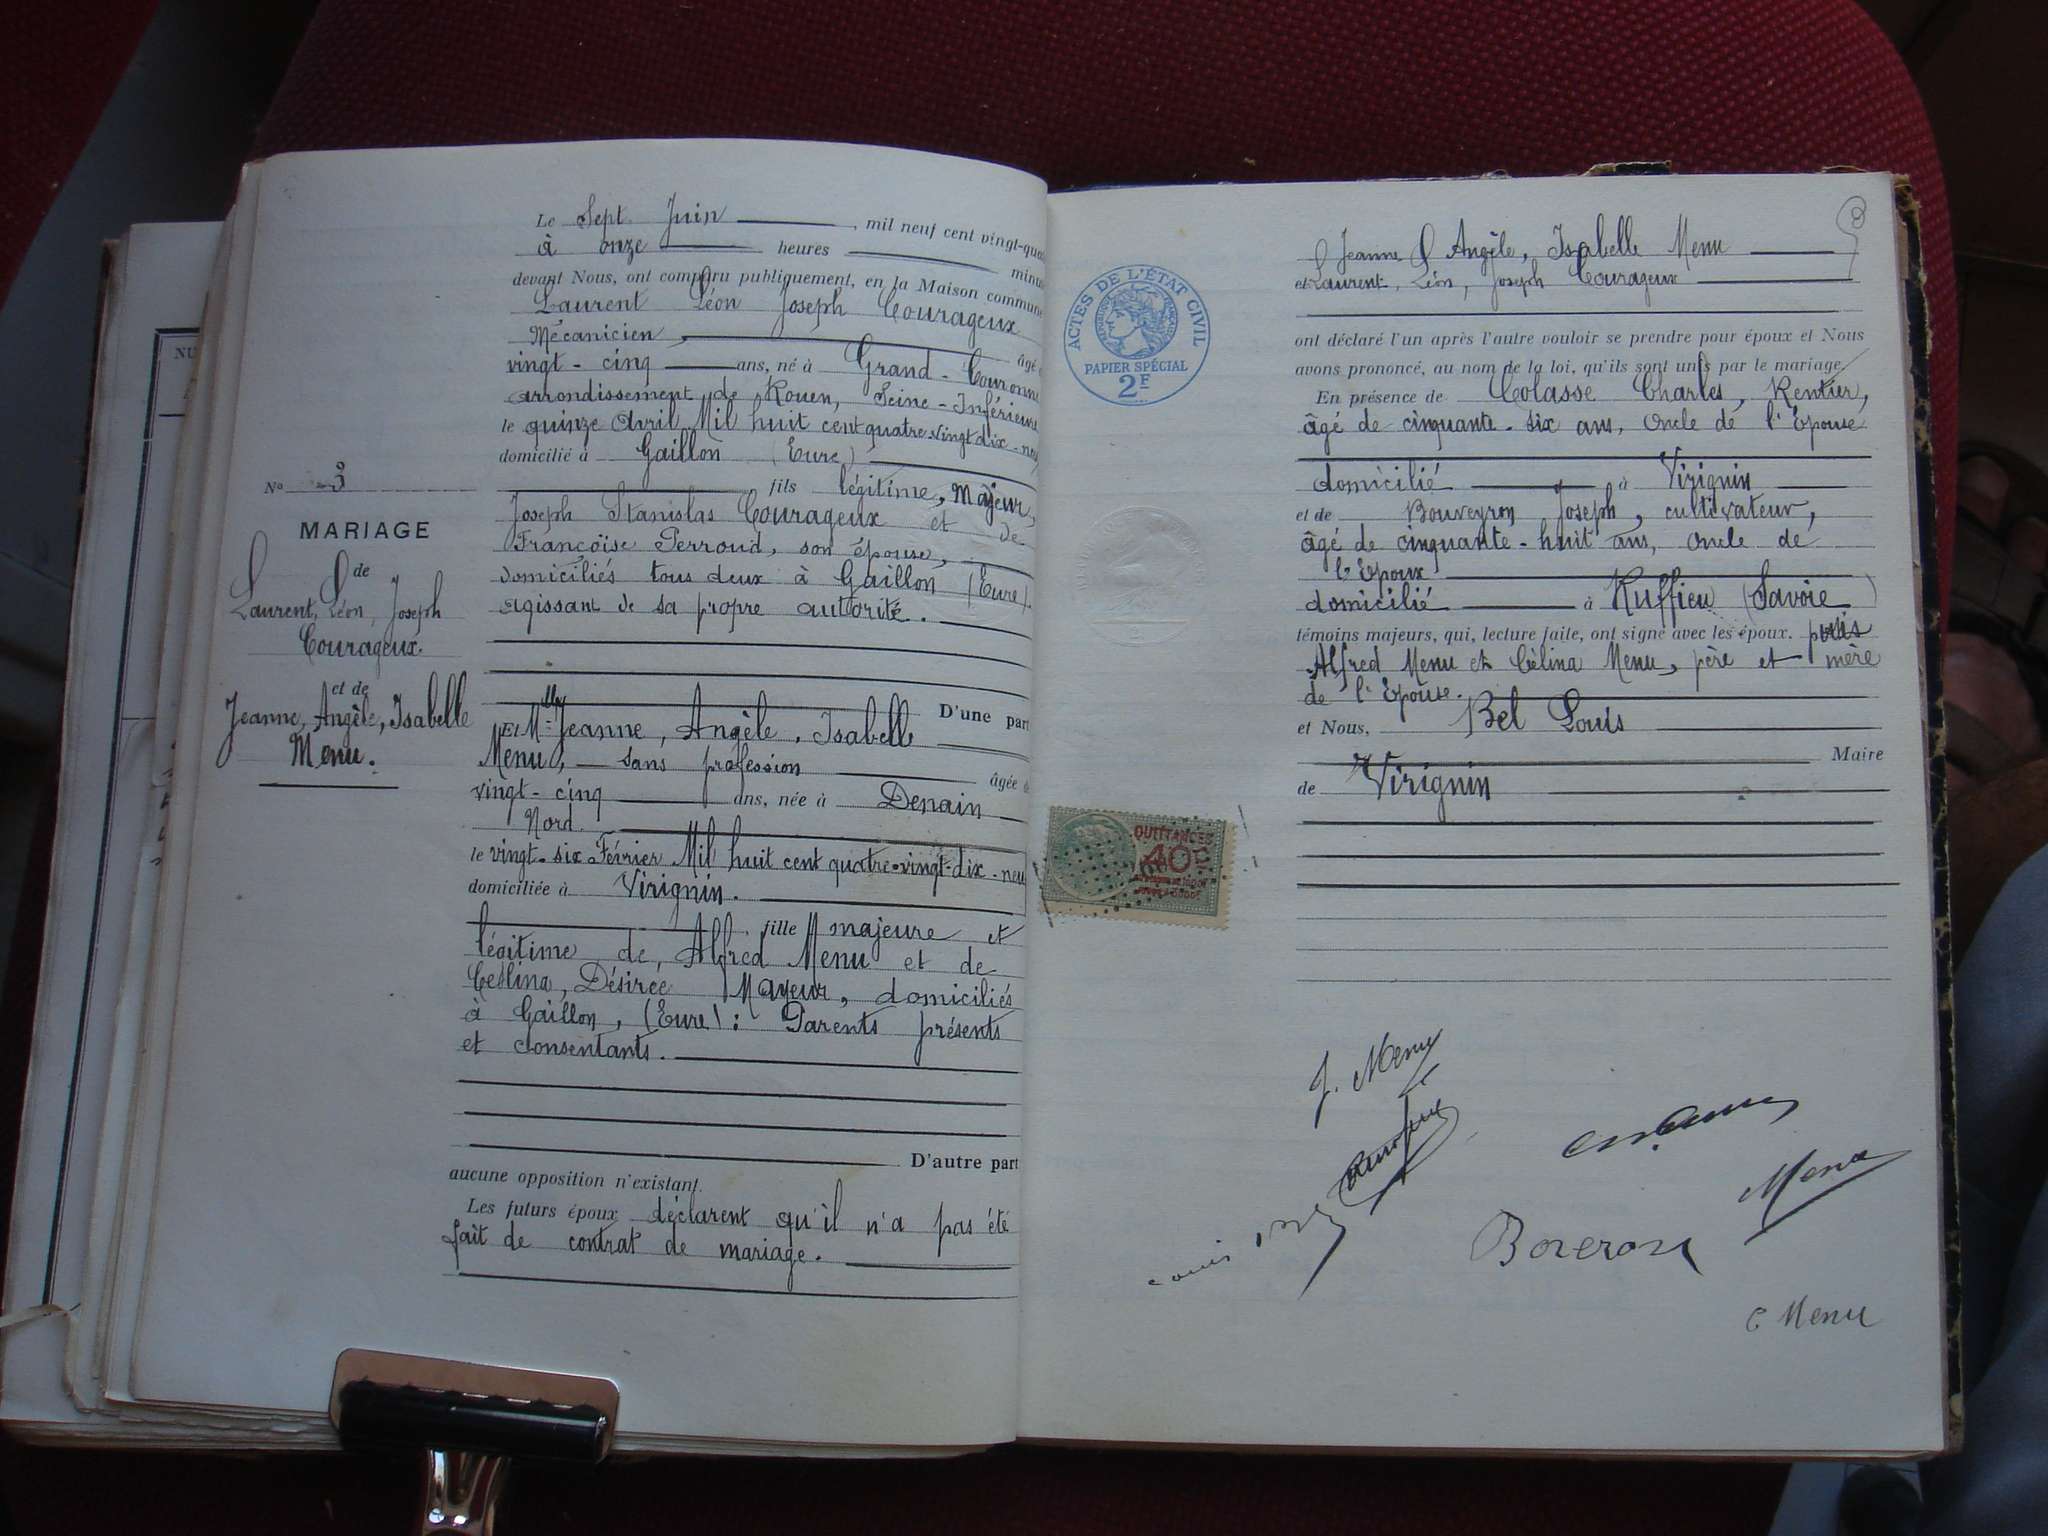 Le Sept Juin, mil neuf cent vingt-qua
à onze heures minu
devant Nous, ont comparu publiquement, en la Maison commune
Laurent Léon Joseph Courageux
Mécanicien, âgé
vingt-cinq ans, né à Grand-Couronne
arrondissement de Rouen, Seine-Inférieure
le quinze Avril Mil huit cent quatre-vingt dix-neuf
domicilié à Gaillon (Eure)
fils légitime, Majeur,
Joseph Stanislas Courageux et de
Françoise Perroud, son épouse,
domiciliés tous deux à Gaillon (Eure).
agissant de sa propre autorité.
D'une part
Et Mlle Jeanne, Angèle, Isabelle
Menu, sans profession âgée d
vingt-cinq ans, née à Denain
Nord.
le vingt-six Février Mil huit cent quatre-vingt-dix-neu
domiciliée à Virignin.
fille majeure et
légitime de, Alfred Menu et de
Célina, Désirée Mayeur, domiciliés
à Gaillon, (Eure): Parents présents
et consentants.
D'autre part
aucune opposition n'existant.
Les futurs époux déclarent qu'il n'a pas été
fait de contrat de mariage.
No 3
MARIAGE
de
Laurent, Léon, Joseph
Courageux.
et de
Jeanne, Angèle, Isabelle
Menu.
NU
8
Jeanne Angèle, Isabelle Menu
et Laurent, Léon, Joseph Courageux
ont déclaré l'un après l'autre vouloir se prendre pour époux et Nous
avons prononcé, au nom de la loi, qu'ils sont unis par le mariage.
En présence de Colasse Charles, Rentier,
âgé de cinquante-six ans, Oncle de l'Epouse
domicilié à Virignin
et de Bouveyron Joseph, cultivateur,
âgé de cinquante-huit ans, oncle de
l'Epoux
domicilié à Ruffieu (Savoie)
témoins majeurs, qui, lecture faite, ont signé avec les époux. puis
Alfred Menu et Célina Menu, père et mère
de l'Epouse.
et Nous, Bel Louis
Maire
de Virignin
ACTES DE L'ÉTAT CIVIL
RÉPUBLIQUE FRANÇAISE
PAPIER SPÉCIAL
2F
QUITTANCES
40c
J. Menu
Menu
C Menu